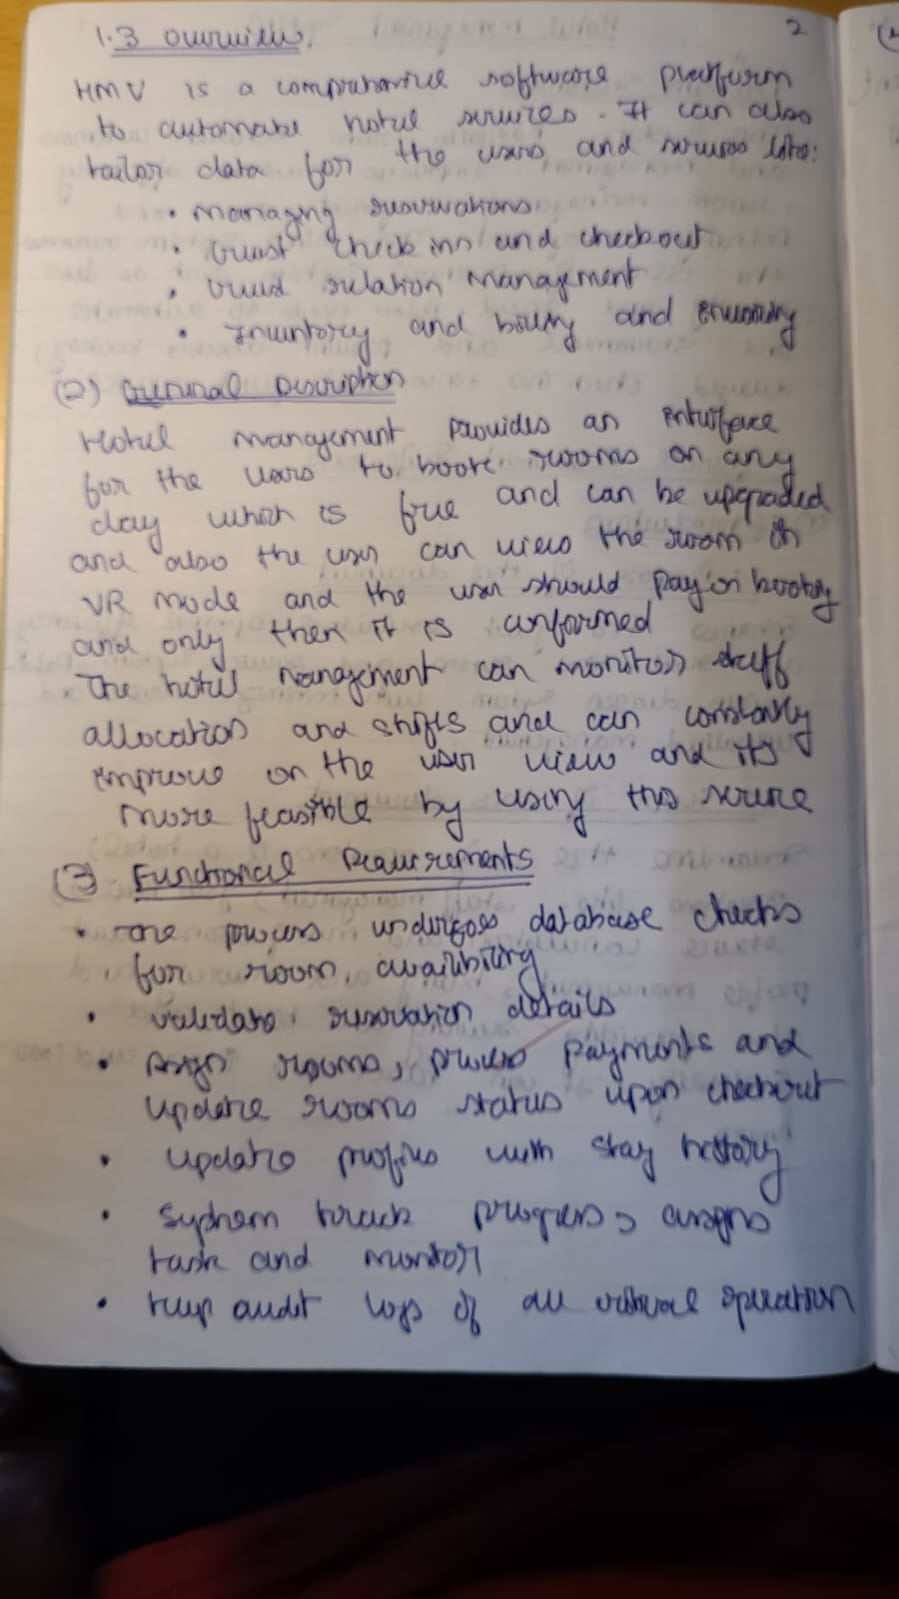 2
1.3 Overview
HMV is a comprehensive software platform
to automate hotel services. It can also
tailor data for the users and services like:
• Managing reservations
• Guest check ins and checkout
• Guest relation Management
• Inventory and billing and
(2) General Description
Hotel management provides an interface
for the users to book rooms on any
day which is free and can be upgraded
and also the user can view the room in
VR mode and the user should pay on booking
and only then it is conformed
The hotel management can monitor staff
allocation and shifts and can constantly
improve on the user view and its
more feasible by using this service
(3) Functional Requirements
• The process undergoes database checks
for room availibility
• Validate reservation details
• Assign rooms, process payments and
update rooms status upon checkout
• Update profiles with stay history
• System track progress, assigns
task and monitor
• Keep audit logs of all critical operation